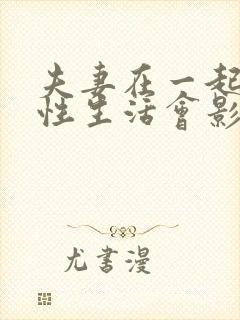 夫妻在一起
性生活會影
尤書漫